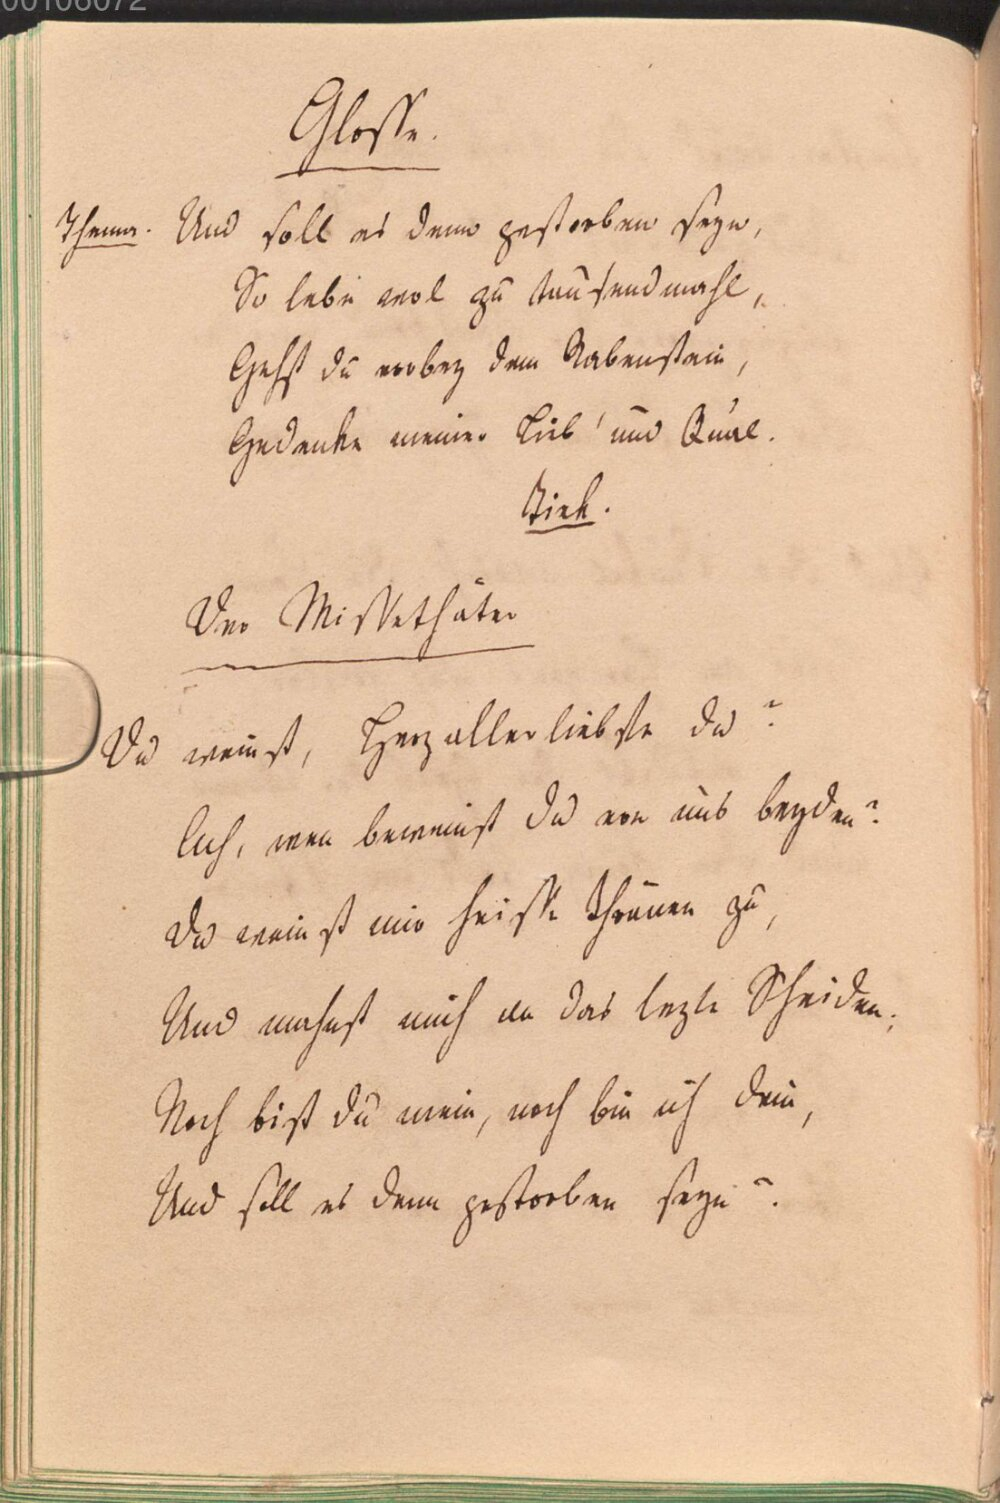 00106072
Glosse.
Thema. Und soll es denn gestorben seyn,
So lebe wol zu tausendmahl,
Gehst du vorbey dem Rabenstein,
Gedenke meiner Lieb' und Qual.
Tiek.
Der Missethäter
Du weinst, Herzallerliebste du?
Ach, wen beweinst du von uns beyden?
Du weinst mir heisse Thränen zu,
Und mahnst mich an das lezte Scheiden;
Noch bist du mein, noch bin ich dein,
Und soll es denn gestorben seyn?